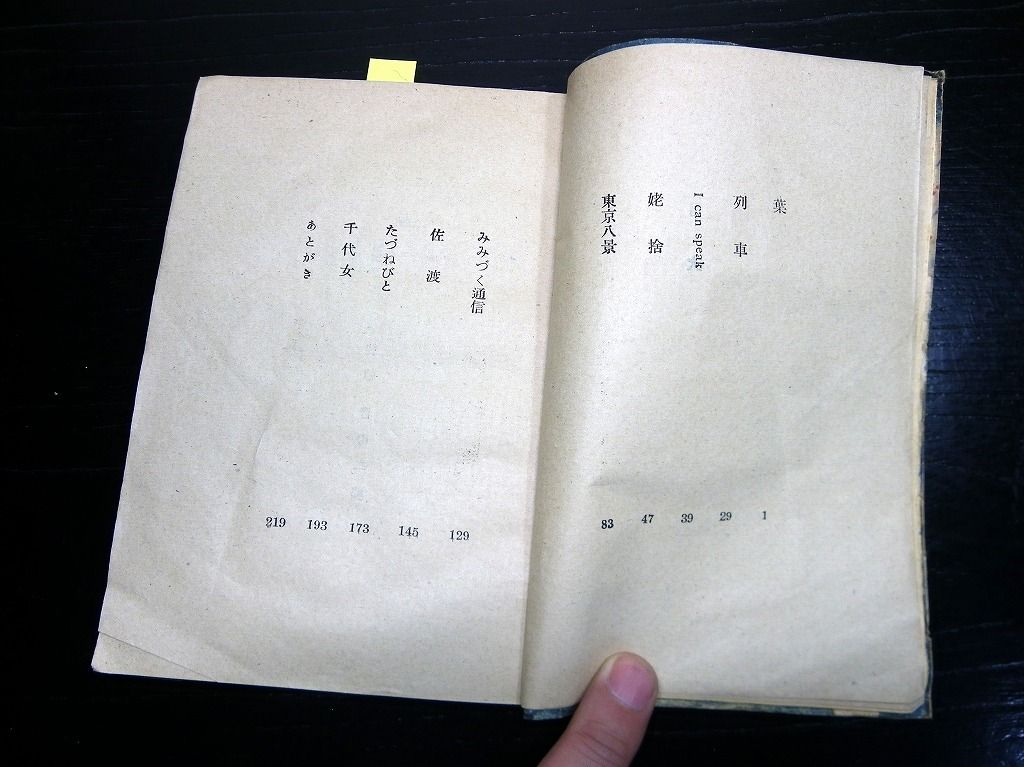 葉
列車
I can speak
姥捨
東京八景
1
29
39
47
83
みみづく通信
佐渡
たづねびと
千代女
あとがき
129
145
173
193
219